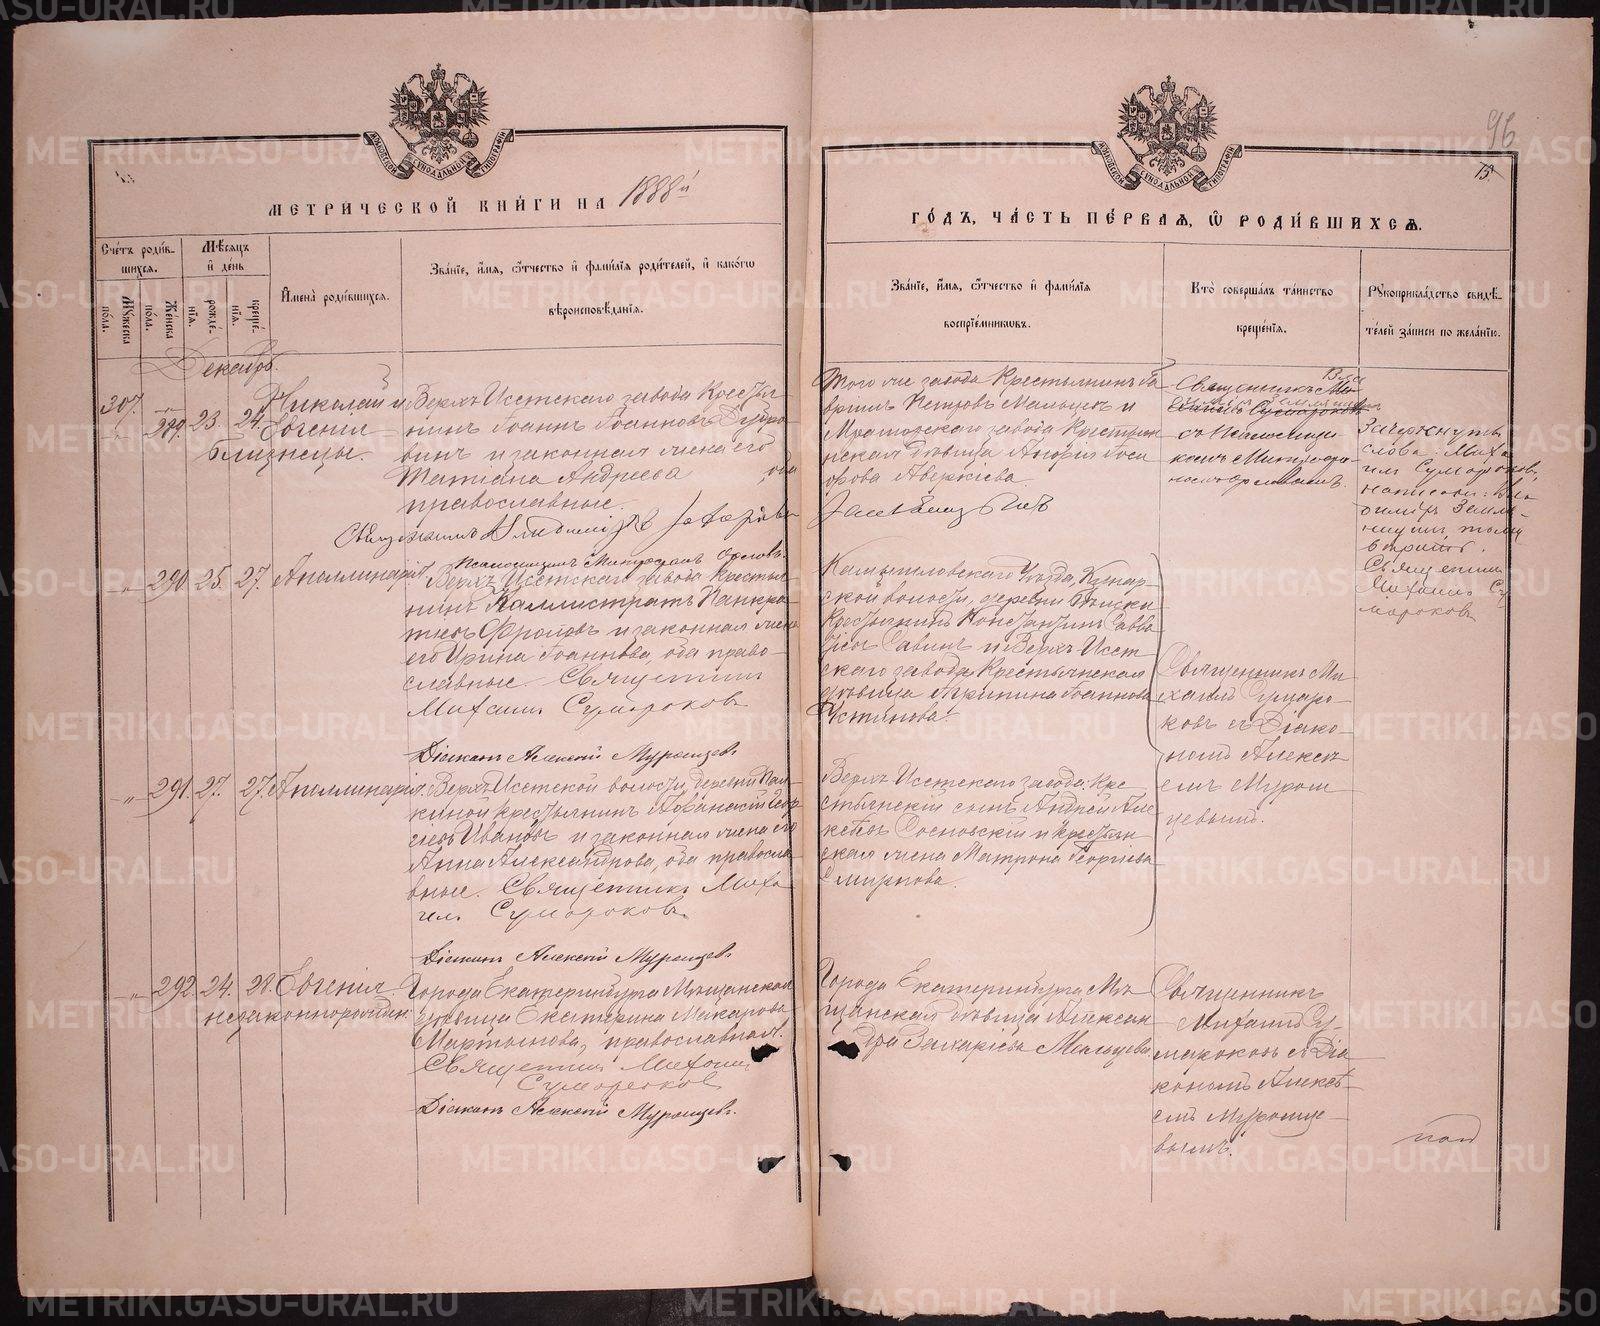 96
75.
МОСКОВСКОЙ СѴНОДАЛЬНОЙ ТИПОГРАФІИ
МОСКОВСКОЙ СѴНОДАЛЬНОЙ ТИПОГРАФІИ
МЕТРИЧЕСКОЙ КНИГИ НА 1888й
ГОДЪ, ЧАСТЬ ПЕРВАЯ, Ѡ РОДИВШИХСЯ.
Счетъ родив-
шихся.
Мужеска
пола.
Женска
пола.
Мѣсяцъ
и день
рожде-
нія.
креще-
нія.
Имена родившихся.
Званіе, имя, ѿчество и фамилія родителей, и какогѡ
вѣроисповѣданія.
Званіе, имя, ѿчество и фамилія
воспріемниковъ.
Кто совершалъ таинство
крещенія.
Рукоприкладство свидѣ-
телей записи по желанію.
Декабрь.
307.
289.
23.
24.
Николай и
Евгенія
близнецы.
Верхъ Исетскаго завода Крестья
нинъ Іоаннъ Іоанновъ
винъ и законная жена его
Татіана Андреева оба
православные.
Священникъ Владиміръ
Псаломщикъ Митрофанъ Орловъ.
Того же завода Крестьянинъ Га
вріилъ Петровъ Мальцевъ и
Мраморскаго завода Крестьян
ская дѣвица
Аверкіева.
Священникъ
съ Псаломщи
комъ Митрофа
номъ Орловымъ.
Зачеркнуты
слова: Миха
илъ Сумароковъ,
написано: Вла
диміръ Земля
ницынъ,
вѣрить.
Священникъ
Михаилъ Су
мароковъ
290.
25.
27.
Аполлинарія
Верхъ Исетскаго завода Крестья
нинъ Каллистратъ Панкра
тьевъ Фроловъ и законная жена
его Ирина Іоаннова, оба право-
славные. Священникъ
Михаилъ Сумароковъ
Діаконъ Алексій Муромцевъ.
Камышловскаго Уѣзда, Кунар-
ской волости, деревни
Крестьянинъ Константинъ Савва
Савинъ и Верхъ Исет-
скаго завода Крестьянская
дѣвица Агрипина Іоаннова
Устинова.
Священникъ Ми-
хаилъ Сумаро-
ковъ съ Діако-
номъ Алексѣ-
емъ Муром
цевымъ.
291.
27.
27.
Аполлинарія.
Верхъ Исетской волости, деревни Пал-
киной крестьянинъ Афанасій Геор
гіевъ Ивановъ и законная жена его
Анна Александрова, оба правосла-
вные. Священникъ Миха
илъ Сумароковъ.
Діаконъ Алексій Муромцевъ.
Верхъ Исетскаго завода: Кре
стьянскій сынъ Андрей Але
ксѣевъ Сосновскій и крестьян
ская жена Матрона Георгіева
Смирнова.
292.
24.
28.
Евгенія
незаконнорожден.
Города Екатеринбурга Мѣщанская
дѣвица Екатерина Макарова
Мартынова, православная.
Священникъ Михаилъ
Сумароковъ
Діаконъ Алексій Муромцевъ.
Города Екатеринбурга Мѣ
щанская дѣвица Алексан
дра Захаріева Мальцева.
Священникъ
Михаилъ Су-
мароковъ съ Діа
кономъ Алексѣ-
емъ Муромце
вымъ.
METRIKI.GASO-URAL.RU